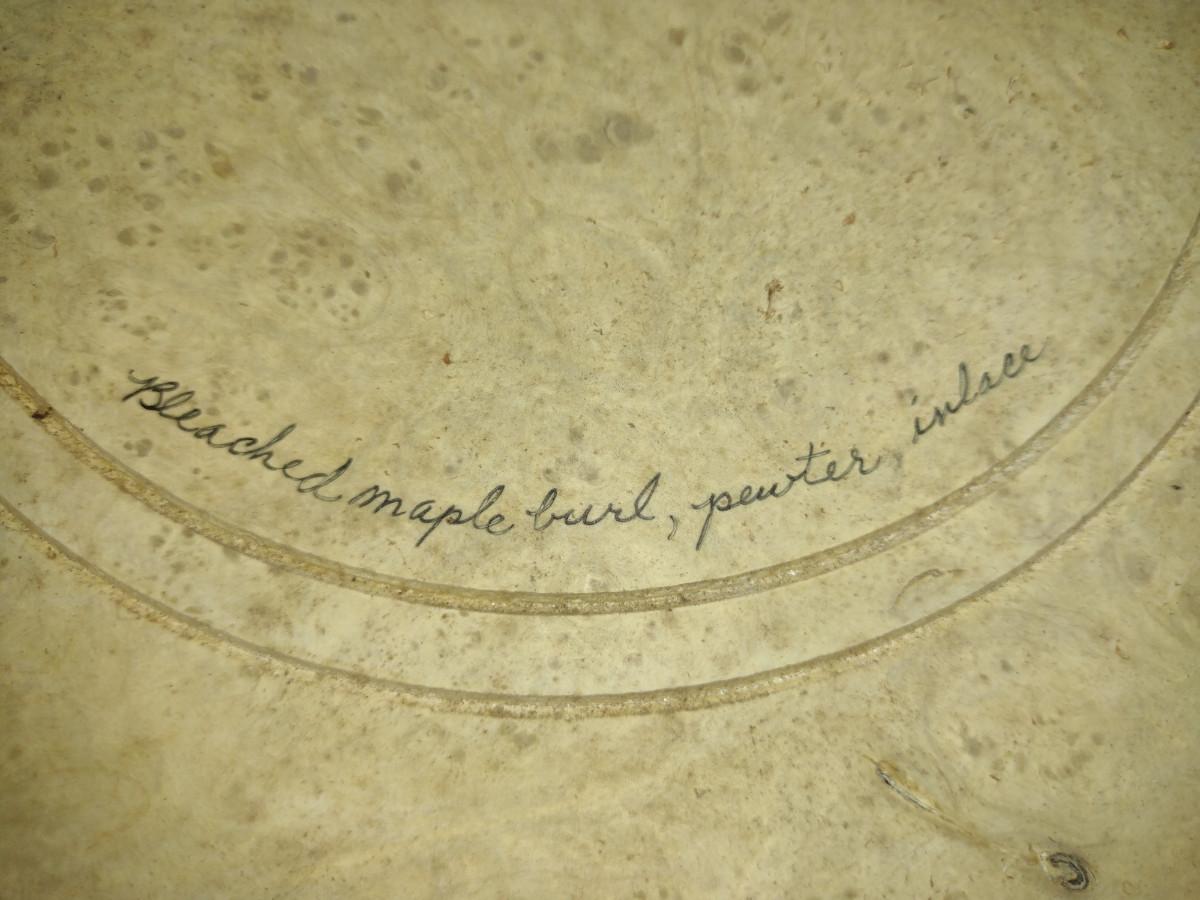 Bleached maple burl, pewter inlace